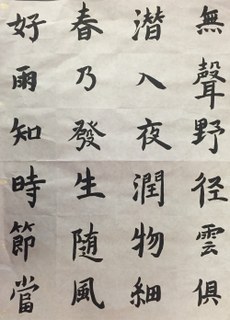 好雨知時節當
春乃發生随風
潜入夜潤物細
無聲野径雲俱